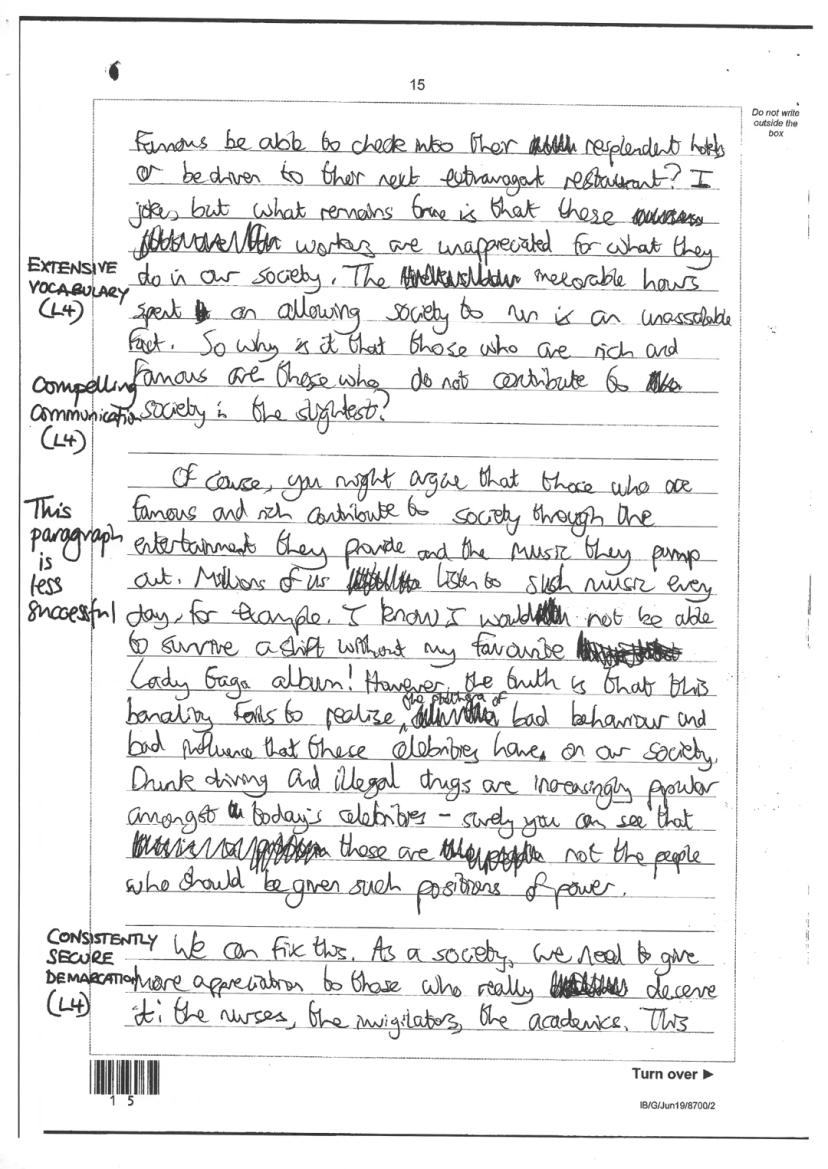 15
Do not write
outside the
box
Famous be able to check into their resplendent hotels
or be driven to their next extravagant restaurant? I
joke, but what remains true is that these
workers are unappreciated for what they
EXTENSIVE
VOCABULARY
(L4)
do in our society. The inexorable hours
spent on allowing society to run is an unassailable
fact. So why is it that those who are rich and
Compelling
Communication
(L4)
famous are those who do not contribute to
society in the slightest?
Of course, you might argue that those who are
This
paragraph
is
less
successful
famous and rich contribute to society through the
entertainment they provide and the music they pump
out. Millions of us listen to such music every
day, for example. I know I would not be able
to survive a shift without my favourite
Lady Gaga album! However, the truth is that this
banality fails to realise, the plethora of bad behaviour and
bad influence that these celebrities have, on our society.
Drunk driving and illegal drugs are increasingly popular
amongst today's celebrities – surely you can see that
these are not the people
who should be given such positions of power.
CONSISTENTLY
SECURE
DEMARCATION
(L4)
We can fix this. As a society, we need to give
more appreciation to those who really deserve
it: the nurses, the invigilators, the academics. This
Turn over ►
1 5
IB/G/Jun19/8700/2